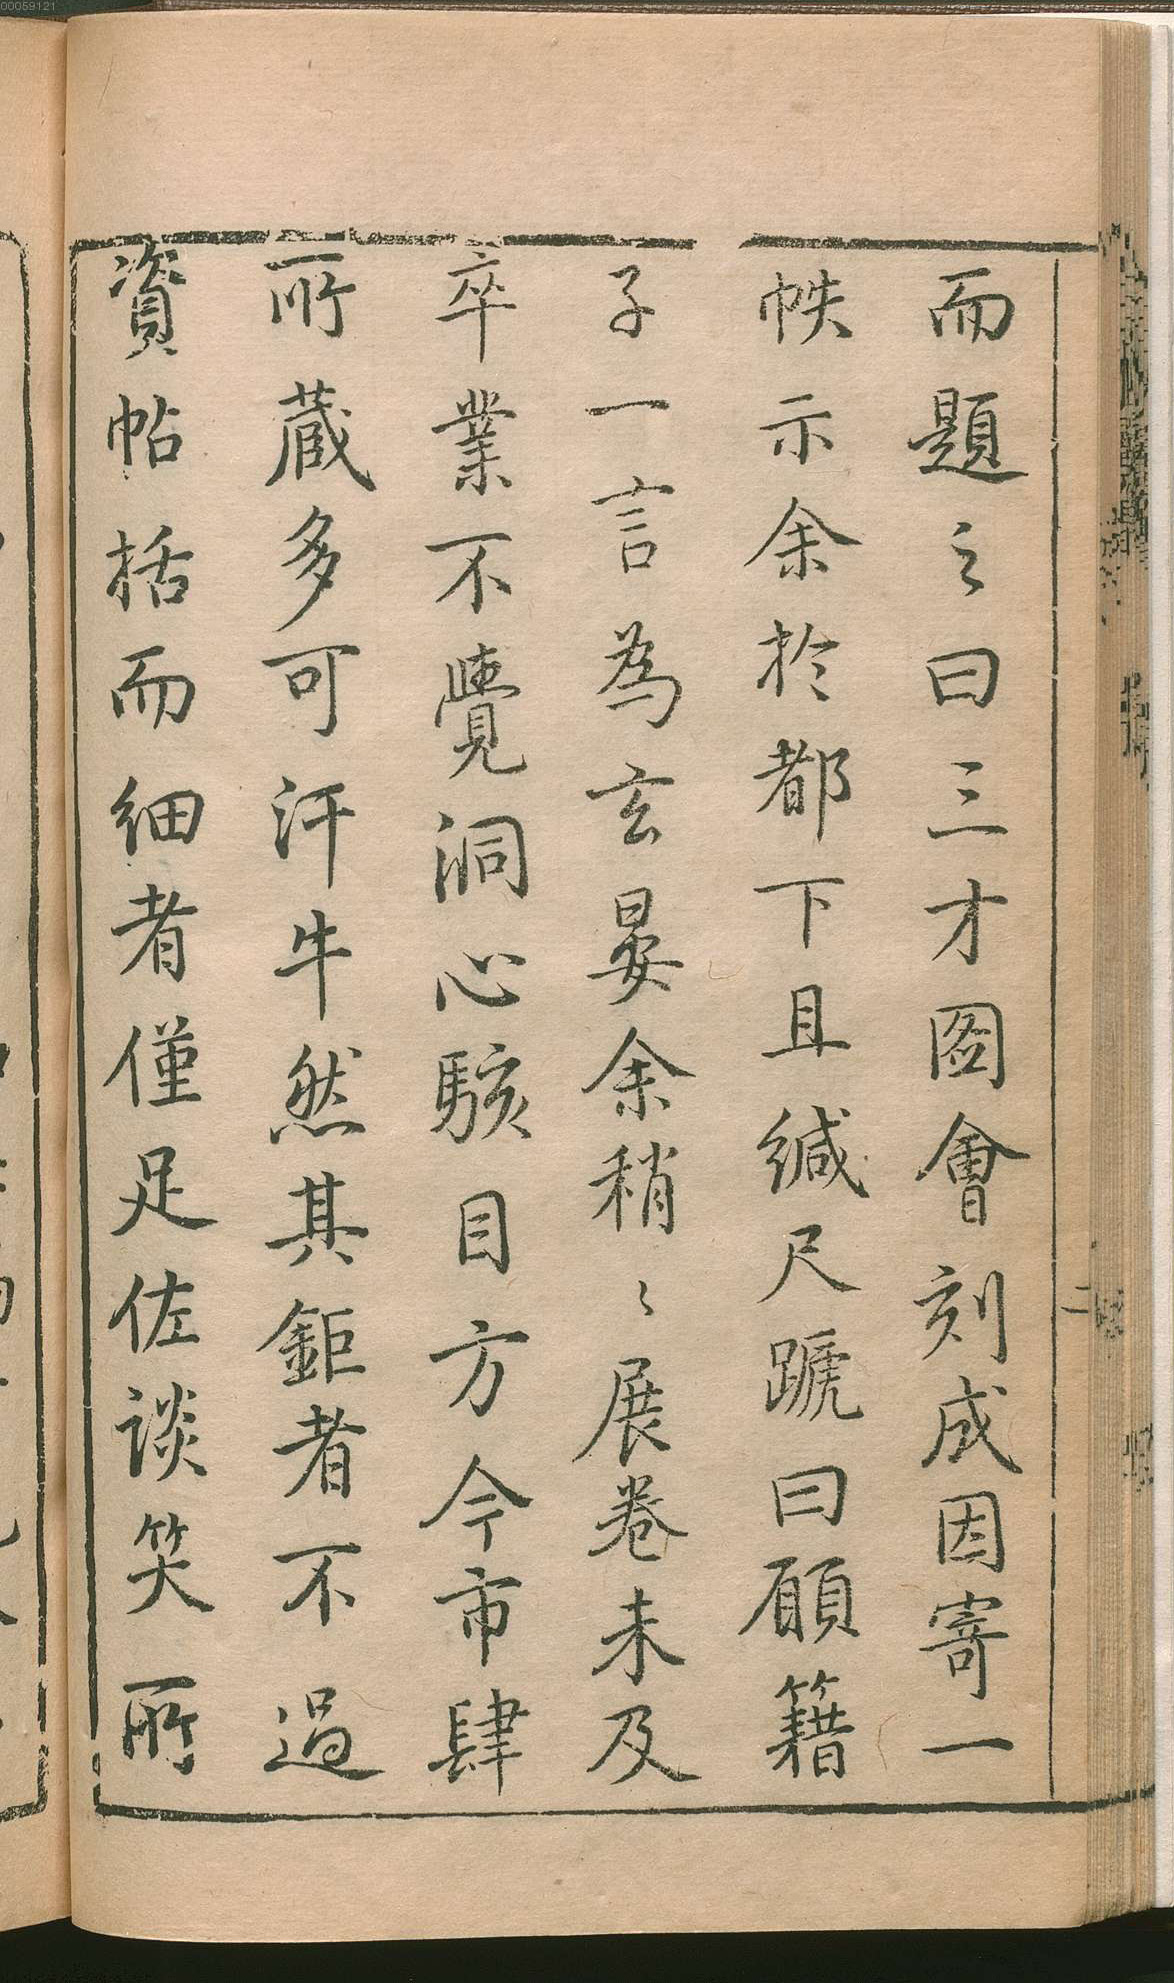 而題之曰三才圖會刻成因寄一
帙示余於都下且緘尺蹏曰願籍
子一言為玄晏余稍〻展卷未及
卒業不覺洞心駭目方今市肆
所蔵多可汗牛然其鉅者不過
資帖括而細者僅足佐談笑所
二
00059121